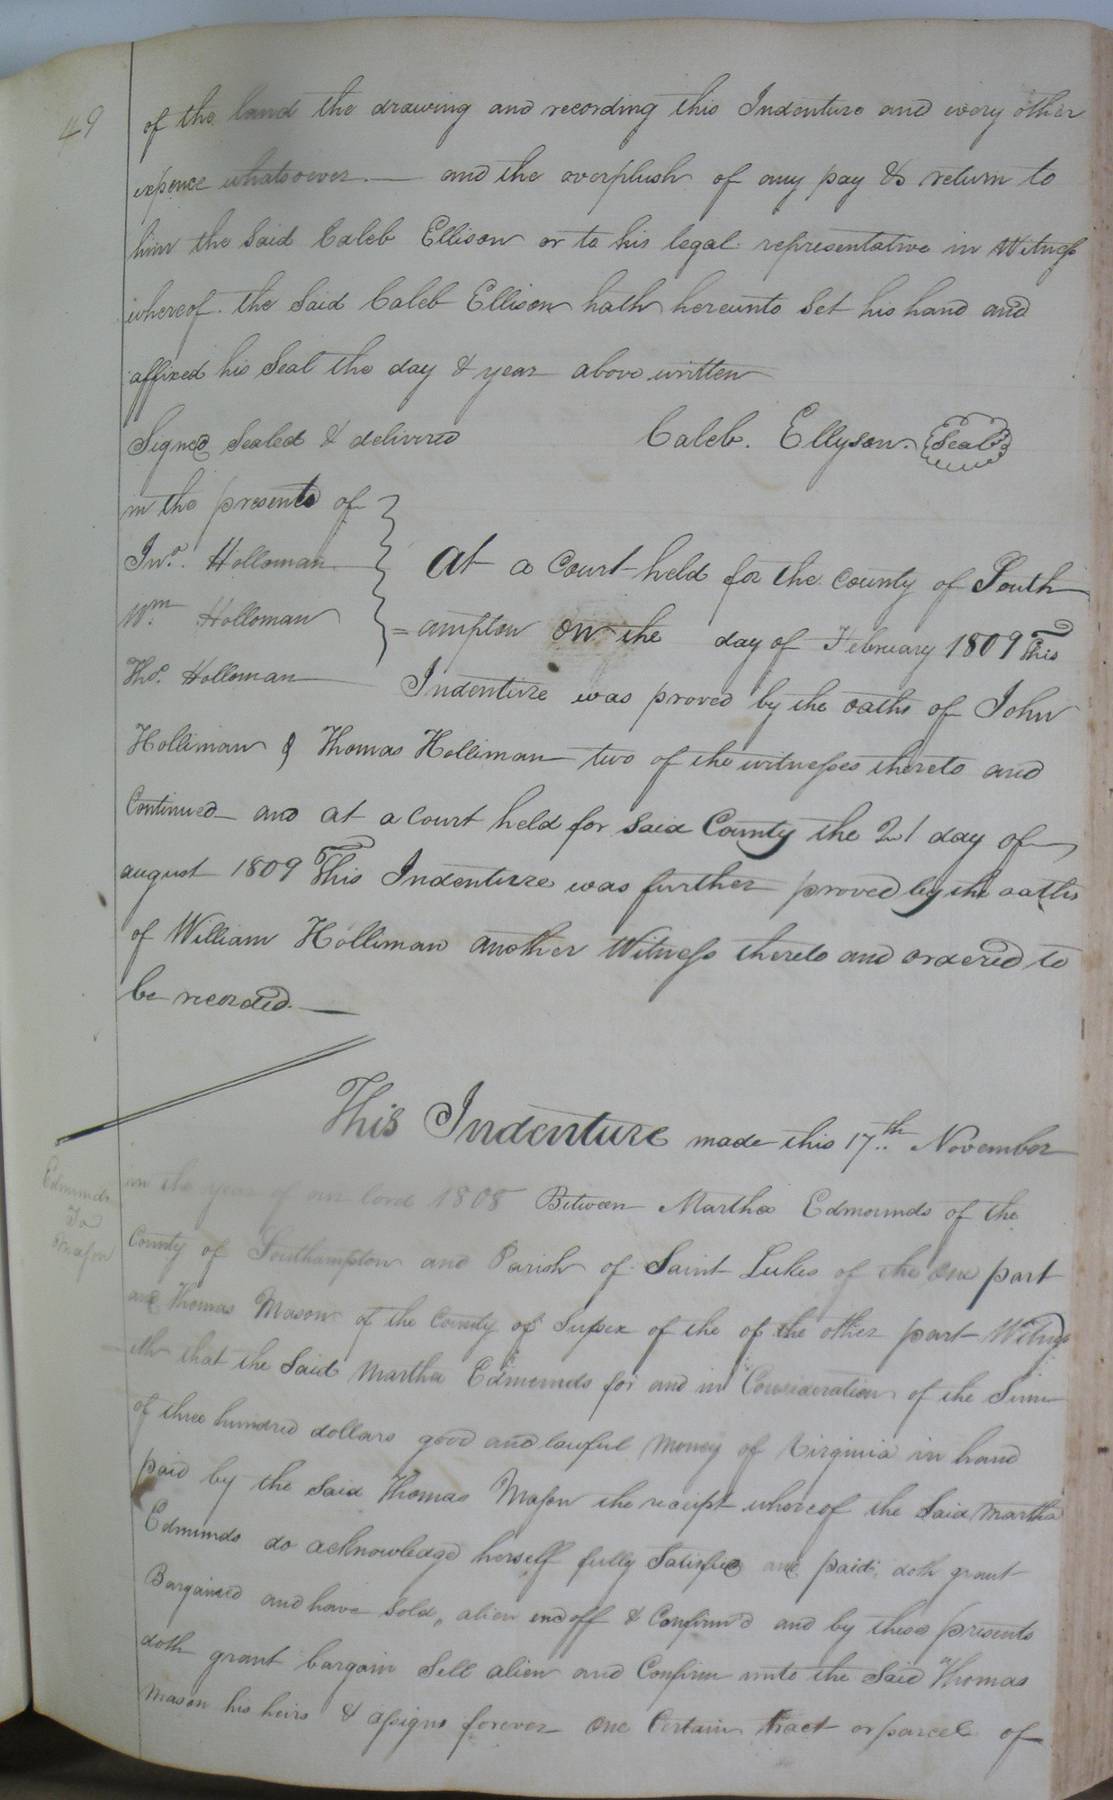 49
of the land the drawing and recording this Indenture and every other
expence whatsoever — and the overplush of any pay & return to
him the Said Caleb Ellison or to his legal representative in Witness
whereof the Said Caleb Ellison hath hereunto Set his hand and
affixed his Seal the day & year above written
Signed Sealed & delivered Caleb. Ellyson. Seal
in the presents of
Jno. Holloman
Wm. Holloman
Tho. Holloman
At a Court held for the County of South
=ampton on the day of February 1809 This
Indenture was proved by the oaths of John
Holliman & Thomas Holliman two of the witnesses thereto and
Continued and at a Court held for Said County the 21 day of
august 1809 This Indenture was further proved by the oaths
of William Holliman another Witness thereto and ordered to
be recorded. —
Edmunds
To
Mason
This Indenture made this 17th November
in the year of our lord 1808 Between Martha Edmunds of the
County of Southampton and Parish of Saint Lukes of the One part
and Thomas Mason of the County of Sussex of the of the other part Witness
eth that the Said Martha Edmunds for and in Consideration of the Sum
of three hundred dollars good and lawful Money of Virginia in hand
paid by the Said Thomas Mason the receipt whereof the Said Martha
Edmunds do acknowledge herself fully Satisfied and paid; doth grant
Bargained and have Sold, alien endoff & Confirmd and by these presents
doth grant bargain Sell alien and Confirm unto the Said Thomas
Mason his heirs & assigns forever One Certain tract or parcel of